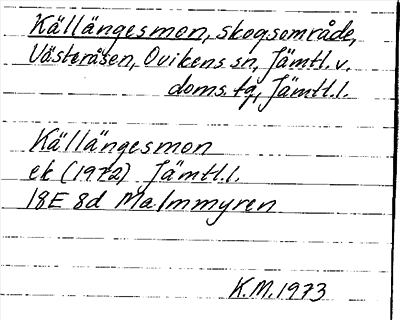 Källängesmon, skogsområde,
Västeråsen, Ovikens sn, Jämtl. v.
doms. tg, Jämtl. l.
Källängesmon
ek (1972) Jämtl. l.
18E 8d Malmmyren
K.M. 1973